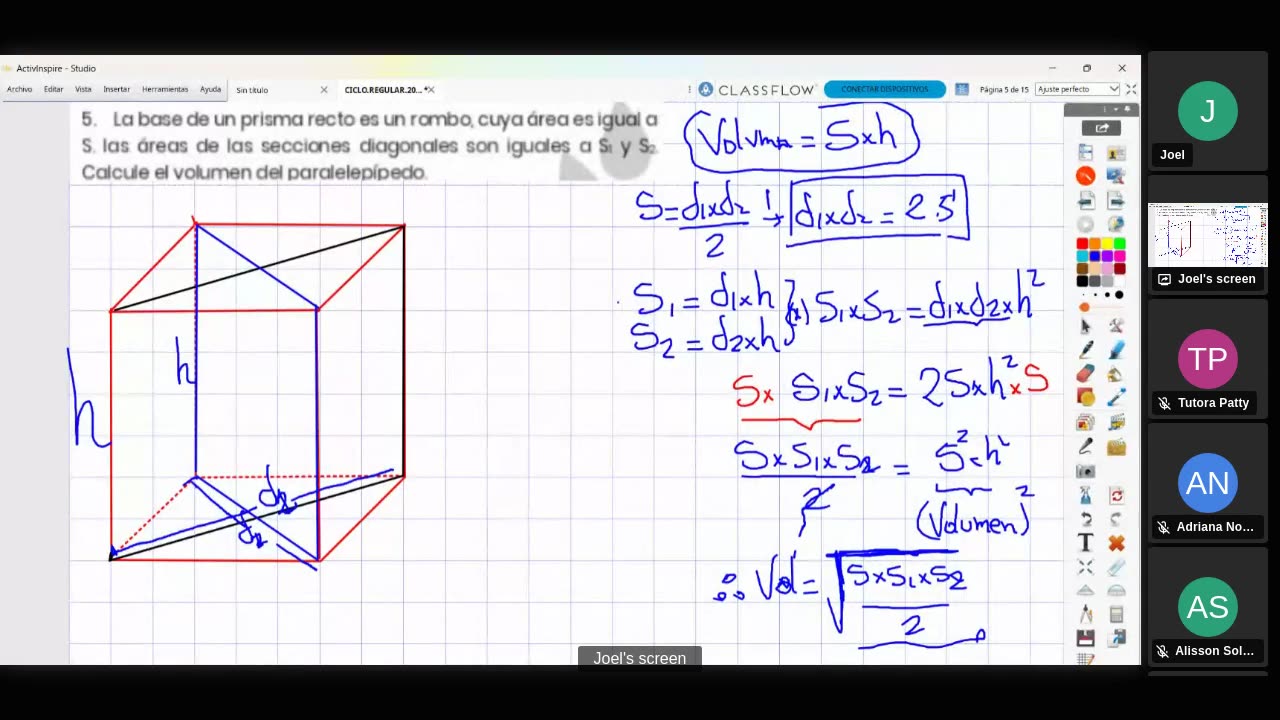 ActivInspire - Studio
Archivo Editar Vista Insertar Herramientas Ayuda
Sin título
CICLO.REGULAR.20... *
CLASSFLOW
CONECTAR DISPOSITIVOS
Página 5 de 15
Ajuste perfecto
5. La base de un prisma recto es un rombo, cuya área es igual a
S. las áreas de las secciones diagonales son iguales a S₁ y S₂.
Calcule el volumen del paralelepípedo.
Volumen = S x h
S = d1xd2 / 2 → d1xd2 = 2.S
S1 = d1xh
S2 = d2xh
(x) S1xS2 = d1xd2xh²
Sx S1xS2 = 2Sxh² xS
SxS1xS2 / 2 = S².h²
(Volumen)²
∴ Vol = √(SxS1xS2 / 2)
h
h
d2
d2
Joel's screen
J
Joel
Joel's screen
TP
Tutora Patty
AN
Adriana No...
AS
Alisson Sol...